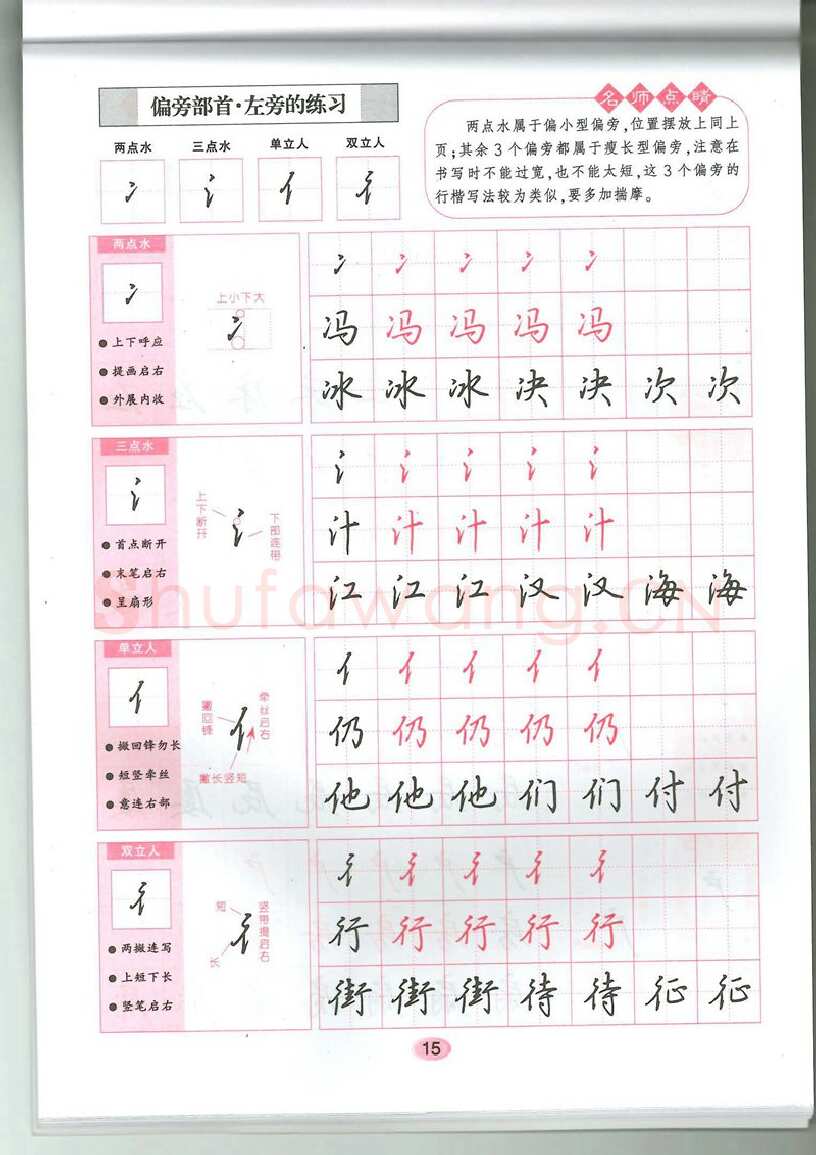 偏旁部首·左旁的练习
名师点睛
两点水属于偏小型偏旁,位置摆放上同上
页;其余3个偏旁都属于瘦长型偏旁,注意在
书写时不能过宽,也不能太短,这3个偏旁的
行楷写法较为类似,要多加揣摩。
两点水 三点水 单立人 双立人
冫 氵 亻 彳
两点水
冫
上下呼应
提画启右
外展内收
上小下大
冫
冫 冫 冫 冫 冫
冯 冯 冯 冯 冯
冰 冰 冰 决 决 次 次
三点水
氵
首点断开
末笔启右
呈扇形
上下断开
氵
下部连带
氵 氵 氵 氵 氵
汁 汁 汁 汁 汁
江 江 江 汉 汉 海 海
Shufawang.CN
单立人
亻
撇回锋勿长
短竖牵丝
意连右部
撇回锋
亻
牵丝启右
撇长竖短
亻 亻 亻 亻 亻
仍 仍 仍 仍 仍
他 他 他 们 们 付 付
双立人
彳
两撇连写
上短下长
竖笔启右
短
长
彳
竖带提启右
彳 彳 彳 彳 彳
行 行 行 行 行
街 街 街 待 待 征 征
15